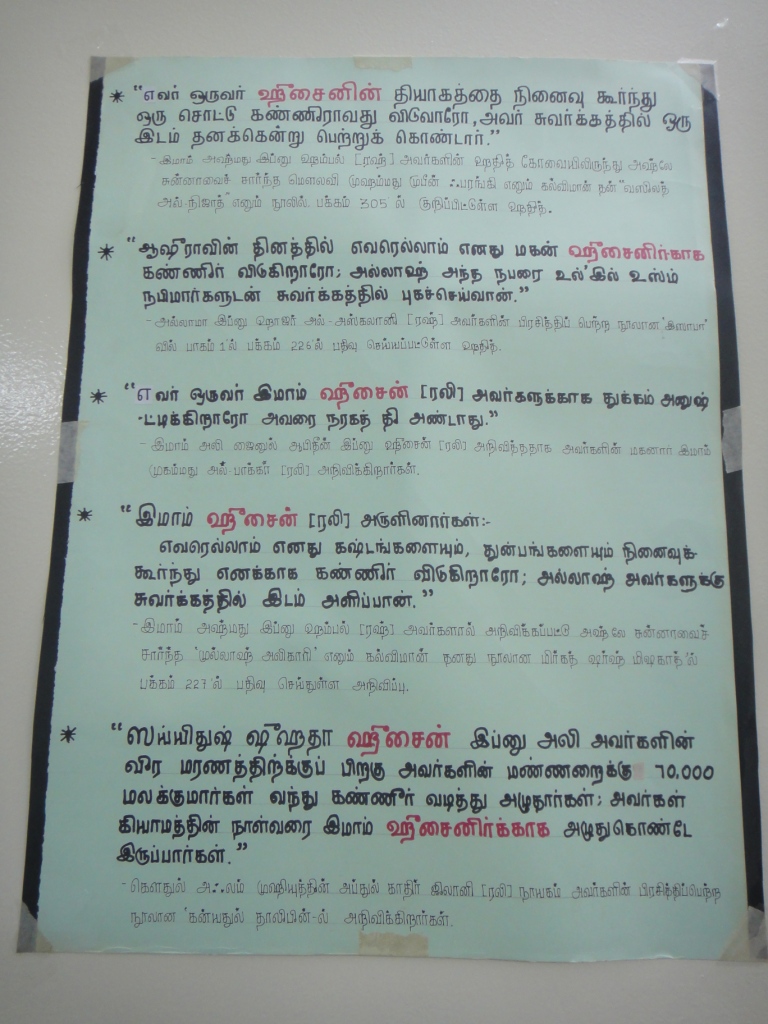 * “எவர் ஒருவர் ஹுசைனின் தியாகத்தை நினைவு கூர்ந்து
ஒரு சொட்டு கண்ணீராவது விடுவாரோ, அவர் சுவர்க்கத்தில் ஒரு
இடம் தனக்கென்று பெற்றுக் கொண்டார்.”
- இமாம் அஹ்மது இப்னு ஹம்பல் [ரஹ்] அவர்களின் ஹதீத் கோவையிலிருந்து அஹ்லே
சுன்னாவைச் சார்ந்த மௌலவி முஹம்மது முபீன் ஃபரங்கி எனும் கல்விமான் தன் “வஸீலத்
அல்-நிஜாத்” எனும் நூலில் பக்கம் 305 ல் குறிப்பிட்டுள்ள ஹதீத்.
* “ஆஷூராவின் தினத்தில் எவரெல்லாம் எனது மகன் ஹுசைனிர்காக
கண்ணீர் விடுகிறாரோ; அல்லாஹ் அந்த நபரை உல்'இல் உஸ்ம்
நபிமார்களுடன் சுவர்க்கத்தில் புகச்செய்வான்.”
- அல்லாமா இப்னு ஹாஜர் அல்-அஸ்கலானி [ரஹ்] அவர்களின் பிரசித்திப் பெற்ற நூலான
வில் பாகம் 1'ல் பக்கம் 226'ல் பதிவு செய்யப்பட்டுள்ள ஹதீத்.
* “எவர் ஒருவர் இமாம் ஹுசைன் [ரலி] அவர்களுக்காக துக்கம் அனுஷ்
-ட்டிக்கிறாரோ அவரை நரகத் தீ அண்டாது.”
- இமாம் அலி ஜைனுல் ஆபிதீன் இப்னு ஹுசைன் [ரலி] அறிவித்ததாக அவர்களின் மகனார் இமாம்
முகம்மது அல்-பாக்கர் [ரலி] அறிவிக்கிறார்கள்.
* “இமாம் ஹுசைன் [ரலி] அருளினார்கள்:-
எவரெல்லாம் எனது கஷ்டங்களையும், துன்பங்களையும் நினைவுக்
கூர்ந்து எனக்காக கண்ணீர் விடுகிறாரோ; அல்லாஹ் அவர்களுக்கு
சுவர்க்கத்தில் இடம் அளிப்பான்.”
- இமாம் அஹ்மது இப்னு ஹம்பல் [ரஹ்] அவர்களால் அறிவிக்கப்பட்டு அஹ்லே சுன்னாவைச்
சார்ந்த 'முல்லாஹ் அலிகாரி' எனும் கல்விமான் தனது நூலான மிர்கத் ஷர்ஹ் மிஷகாத்'ல்
பக்கம் 227'ல் பதிவு செய்துள்ள அறிவிப்பு.
* “ஸய்யிதுஷ் ஷுஹதா ஹுசைன் இப்னு அலி அவர்களின்
வீர மரணத்திற்க்குப் பிறகு அவர்களின் மண்ணறைக்கு 70,000
மலக்குமார்கள் வந்து கண்ணீர் வடித்து அழுதார்கள்; அவர்கள்
கியாமத்தின் நாள்வரை இமாம் ஹுசைனிர்க்காக அழுதுகொண்டே
இருப்பார்கள்.”
- கௌதுல் அஃலம் முஹியுத்தின் அப்துல் காதிர் ஜிலானி [ரலி] நாயகம் அவர்களின் பிரசித்திப்பெற்ற
நூலான 'கன்யதுல் தாலிபின்-ல் அறிவிக்கிறார்கள்.